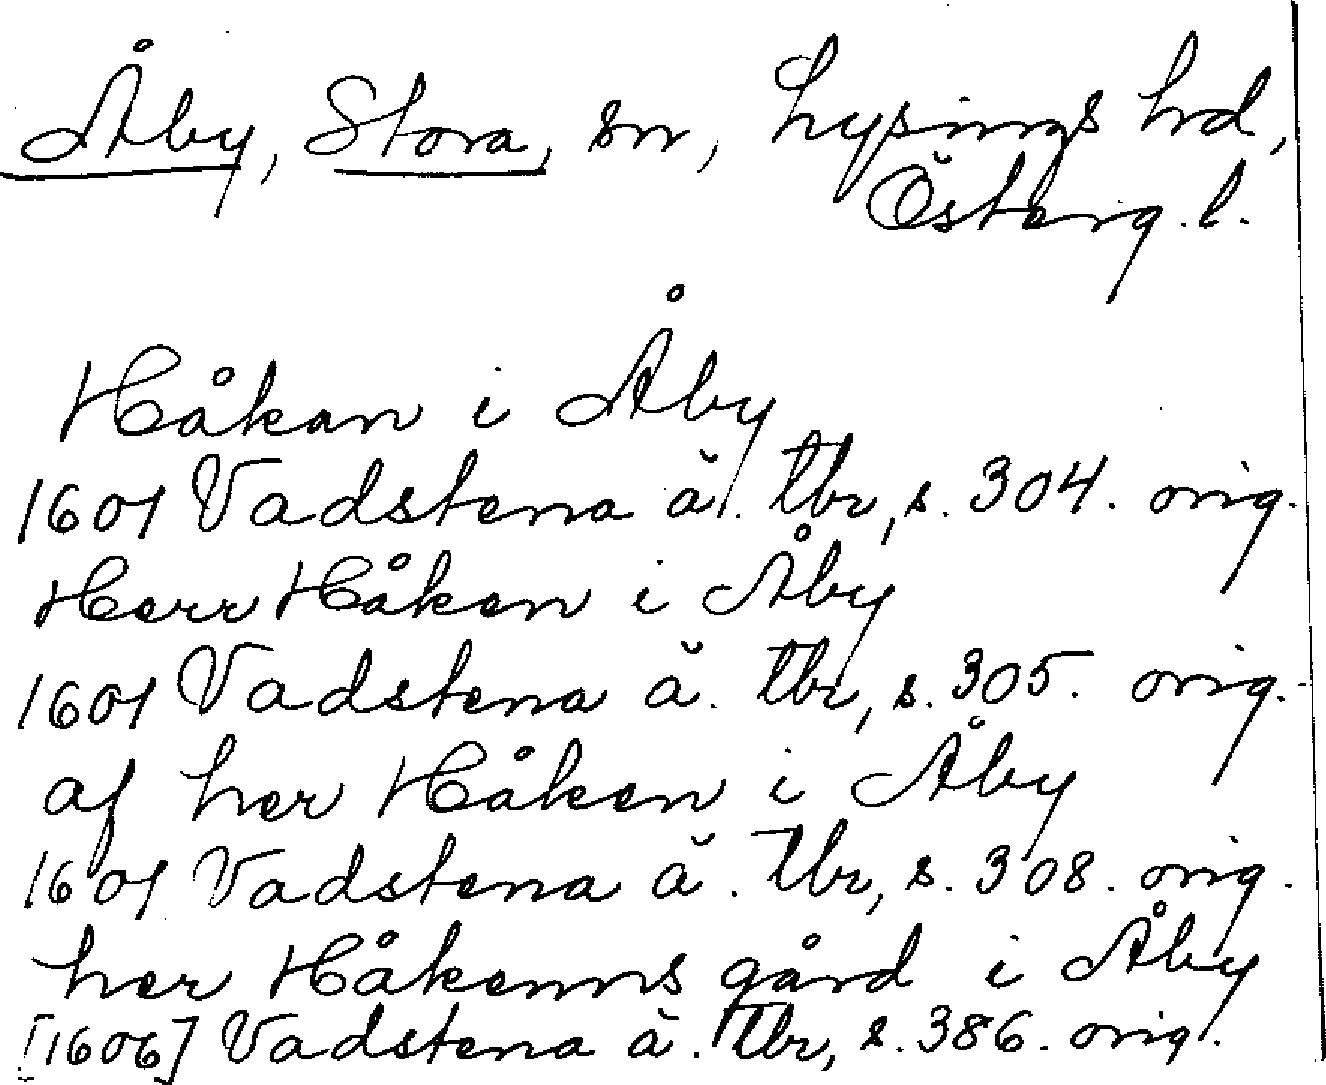 Åby, Stora, sn, Lysings hrd,
Österg. l.
Håkan i Åby
1601 Vadstena ä. tbr, s. 304. orig.
Herr Håken i Åby
1601 Vadstena ä. tbr, s. 305. orig.
af her Håken i Åby
1601 Vadstena ä. tbr, s. 308. orig.
her Håkenns gård i Åby
[1606] Vadstena ä. tbr, s. 386. orig.